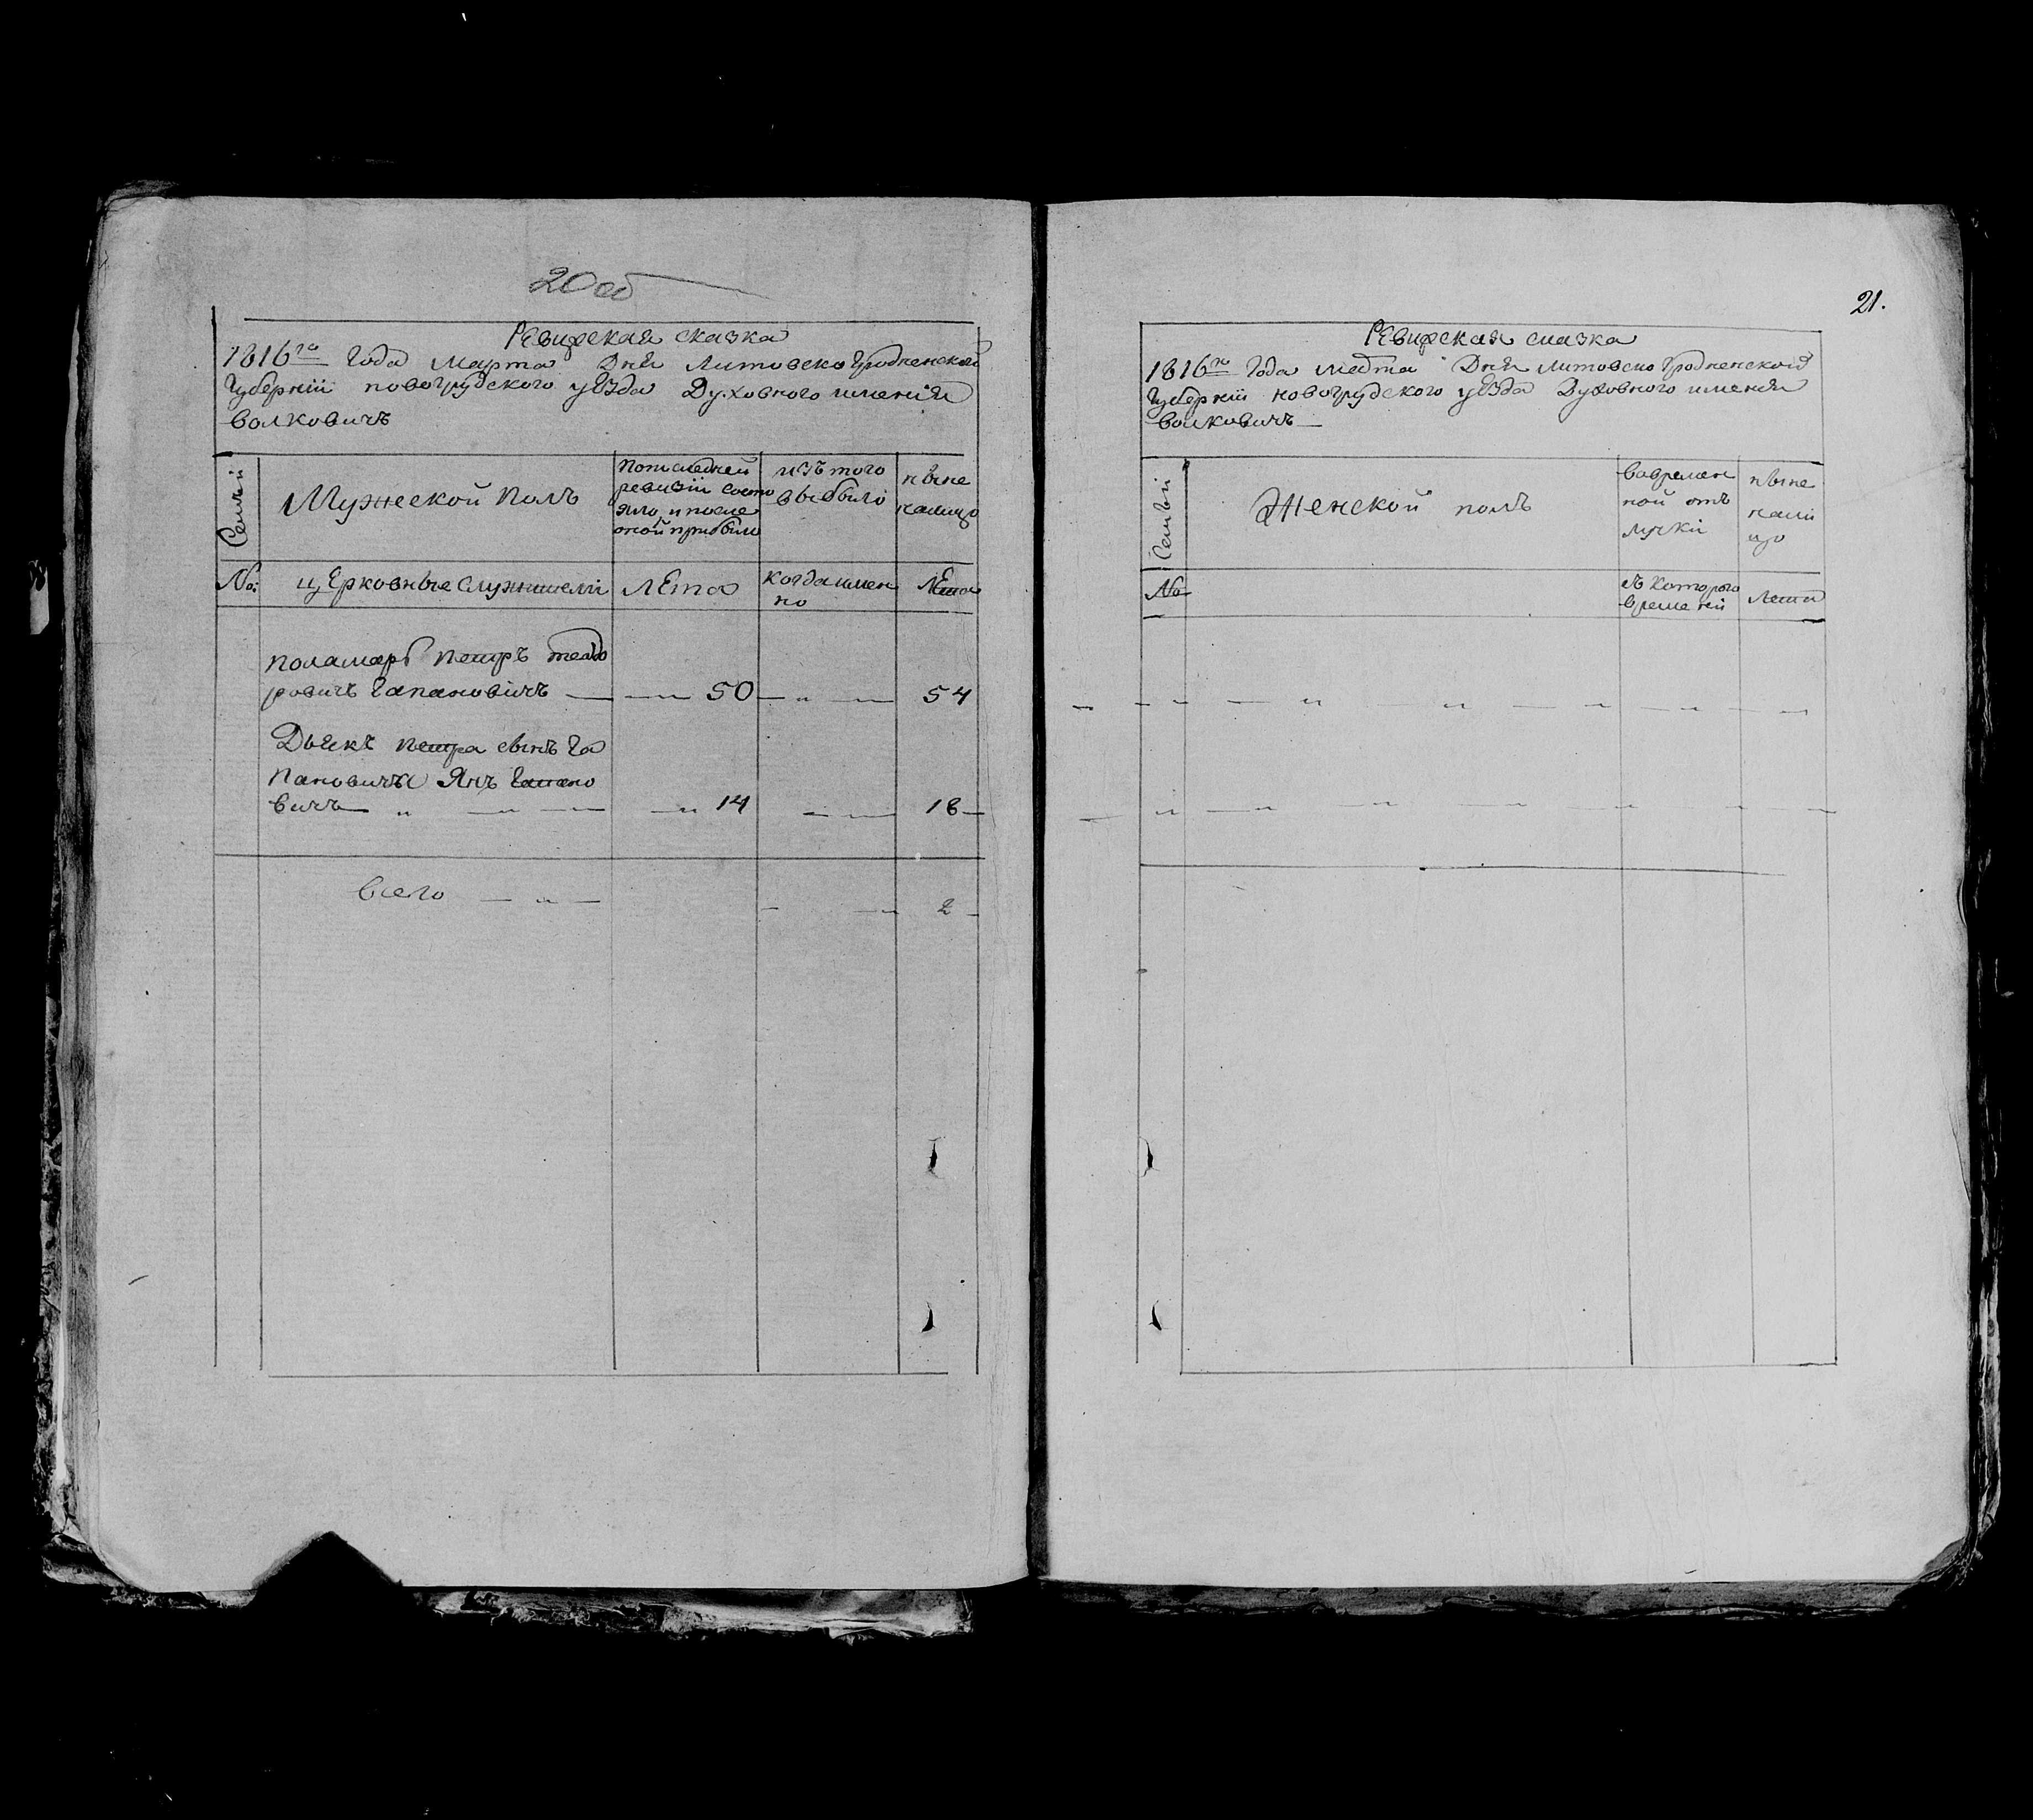 20 об
Ревизская сказка
1816го года Марта Дня Литовско Гродненской
Губернии новогрудского уезда Духовного имения
Волковичъ
Семьи
Мужеской полъ
По последней
ревизии состо
яло и после
оной прибыло
изъ того
выбыло
ныне
налицо
№:
церковные служители
лета
когда имен
но
лета
Поламаръ Петръ теодо
ровичъ Гапановичъ — 50 — 54
Дьякъ Петра сынъ Га
пановича Янъ Гапано
вичъ — 14 — 18
Всего — 2
21.
Ревизская сказка
1816го Года Марта Дня Литовско Гродненской
Губернии новогрудского уезда Духовного имения
Волковичъ
Семьи
Женской полъ
вовремен
ной отъ
лучки
ныне
нали
цо
№
съ которого
времени
лета